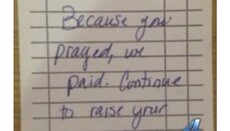 Because you
prayed, we
paid. Continue
to raise your